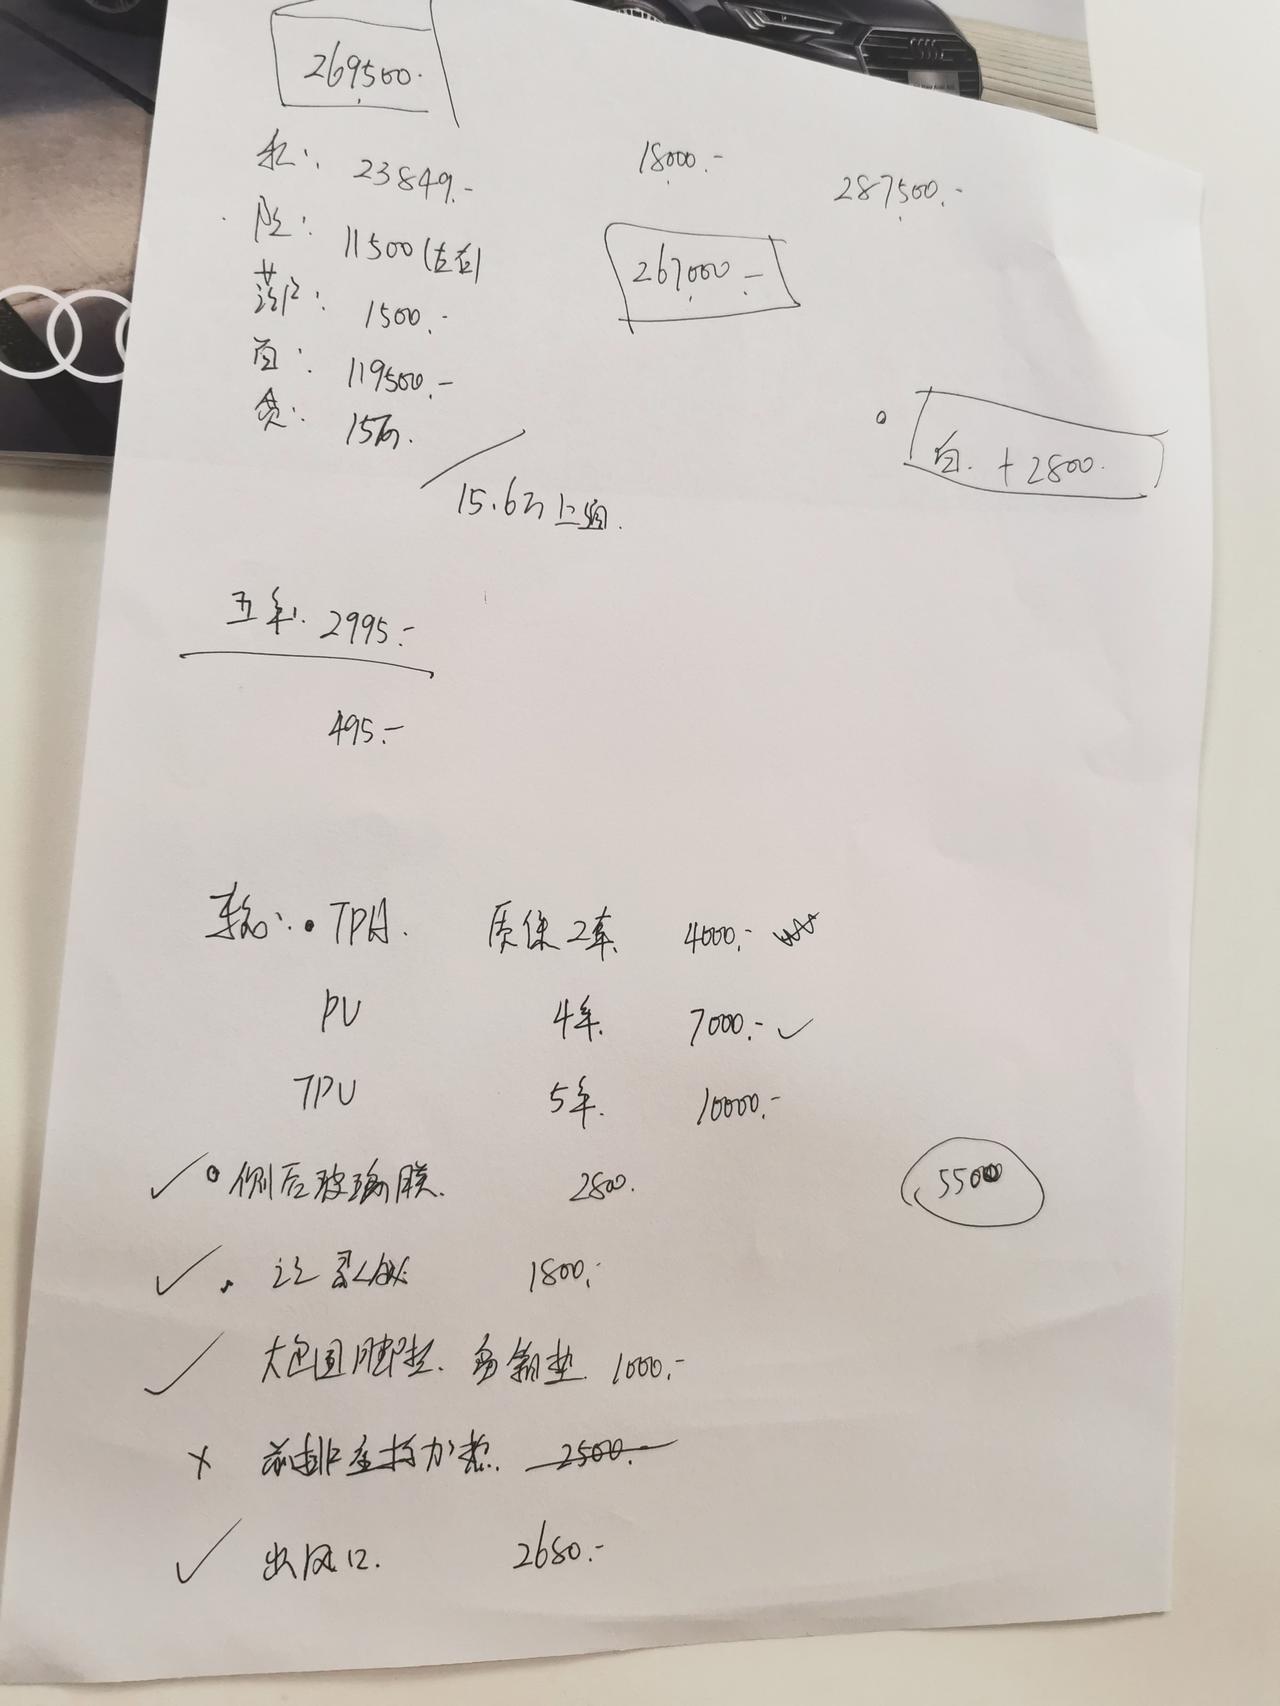 269500.
税: 23849.-
18000.-
287500.-
险: 11500(左右)
267000-
落户: 1500.-
首: 119500.-
贷: 15万.
白. +2800.
15.6万上頭.
五年. 2995.-
495.-
TPH. 质保2年 4000.-
PU 4年. 7000.- ✓
TPU 5年. 10000.-
✓ 侧后玻璃膜. 2800.
5500
✓ 1800.-
✓ 大包围脚垫. 后备箱垫. 1000.-
× 前排座椅加热. 2500.-
✓ 出风口. 2680.-